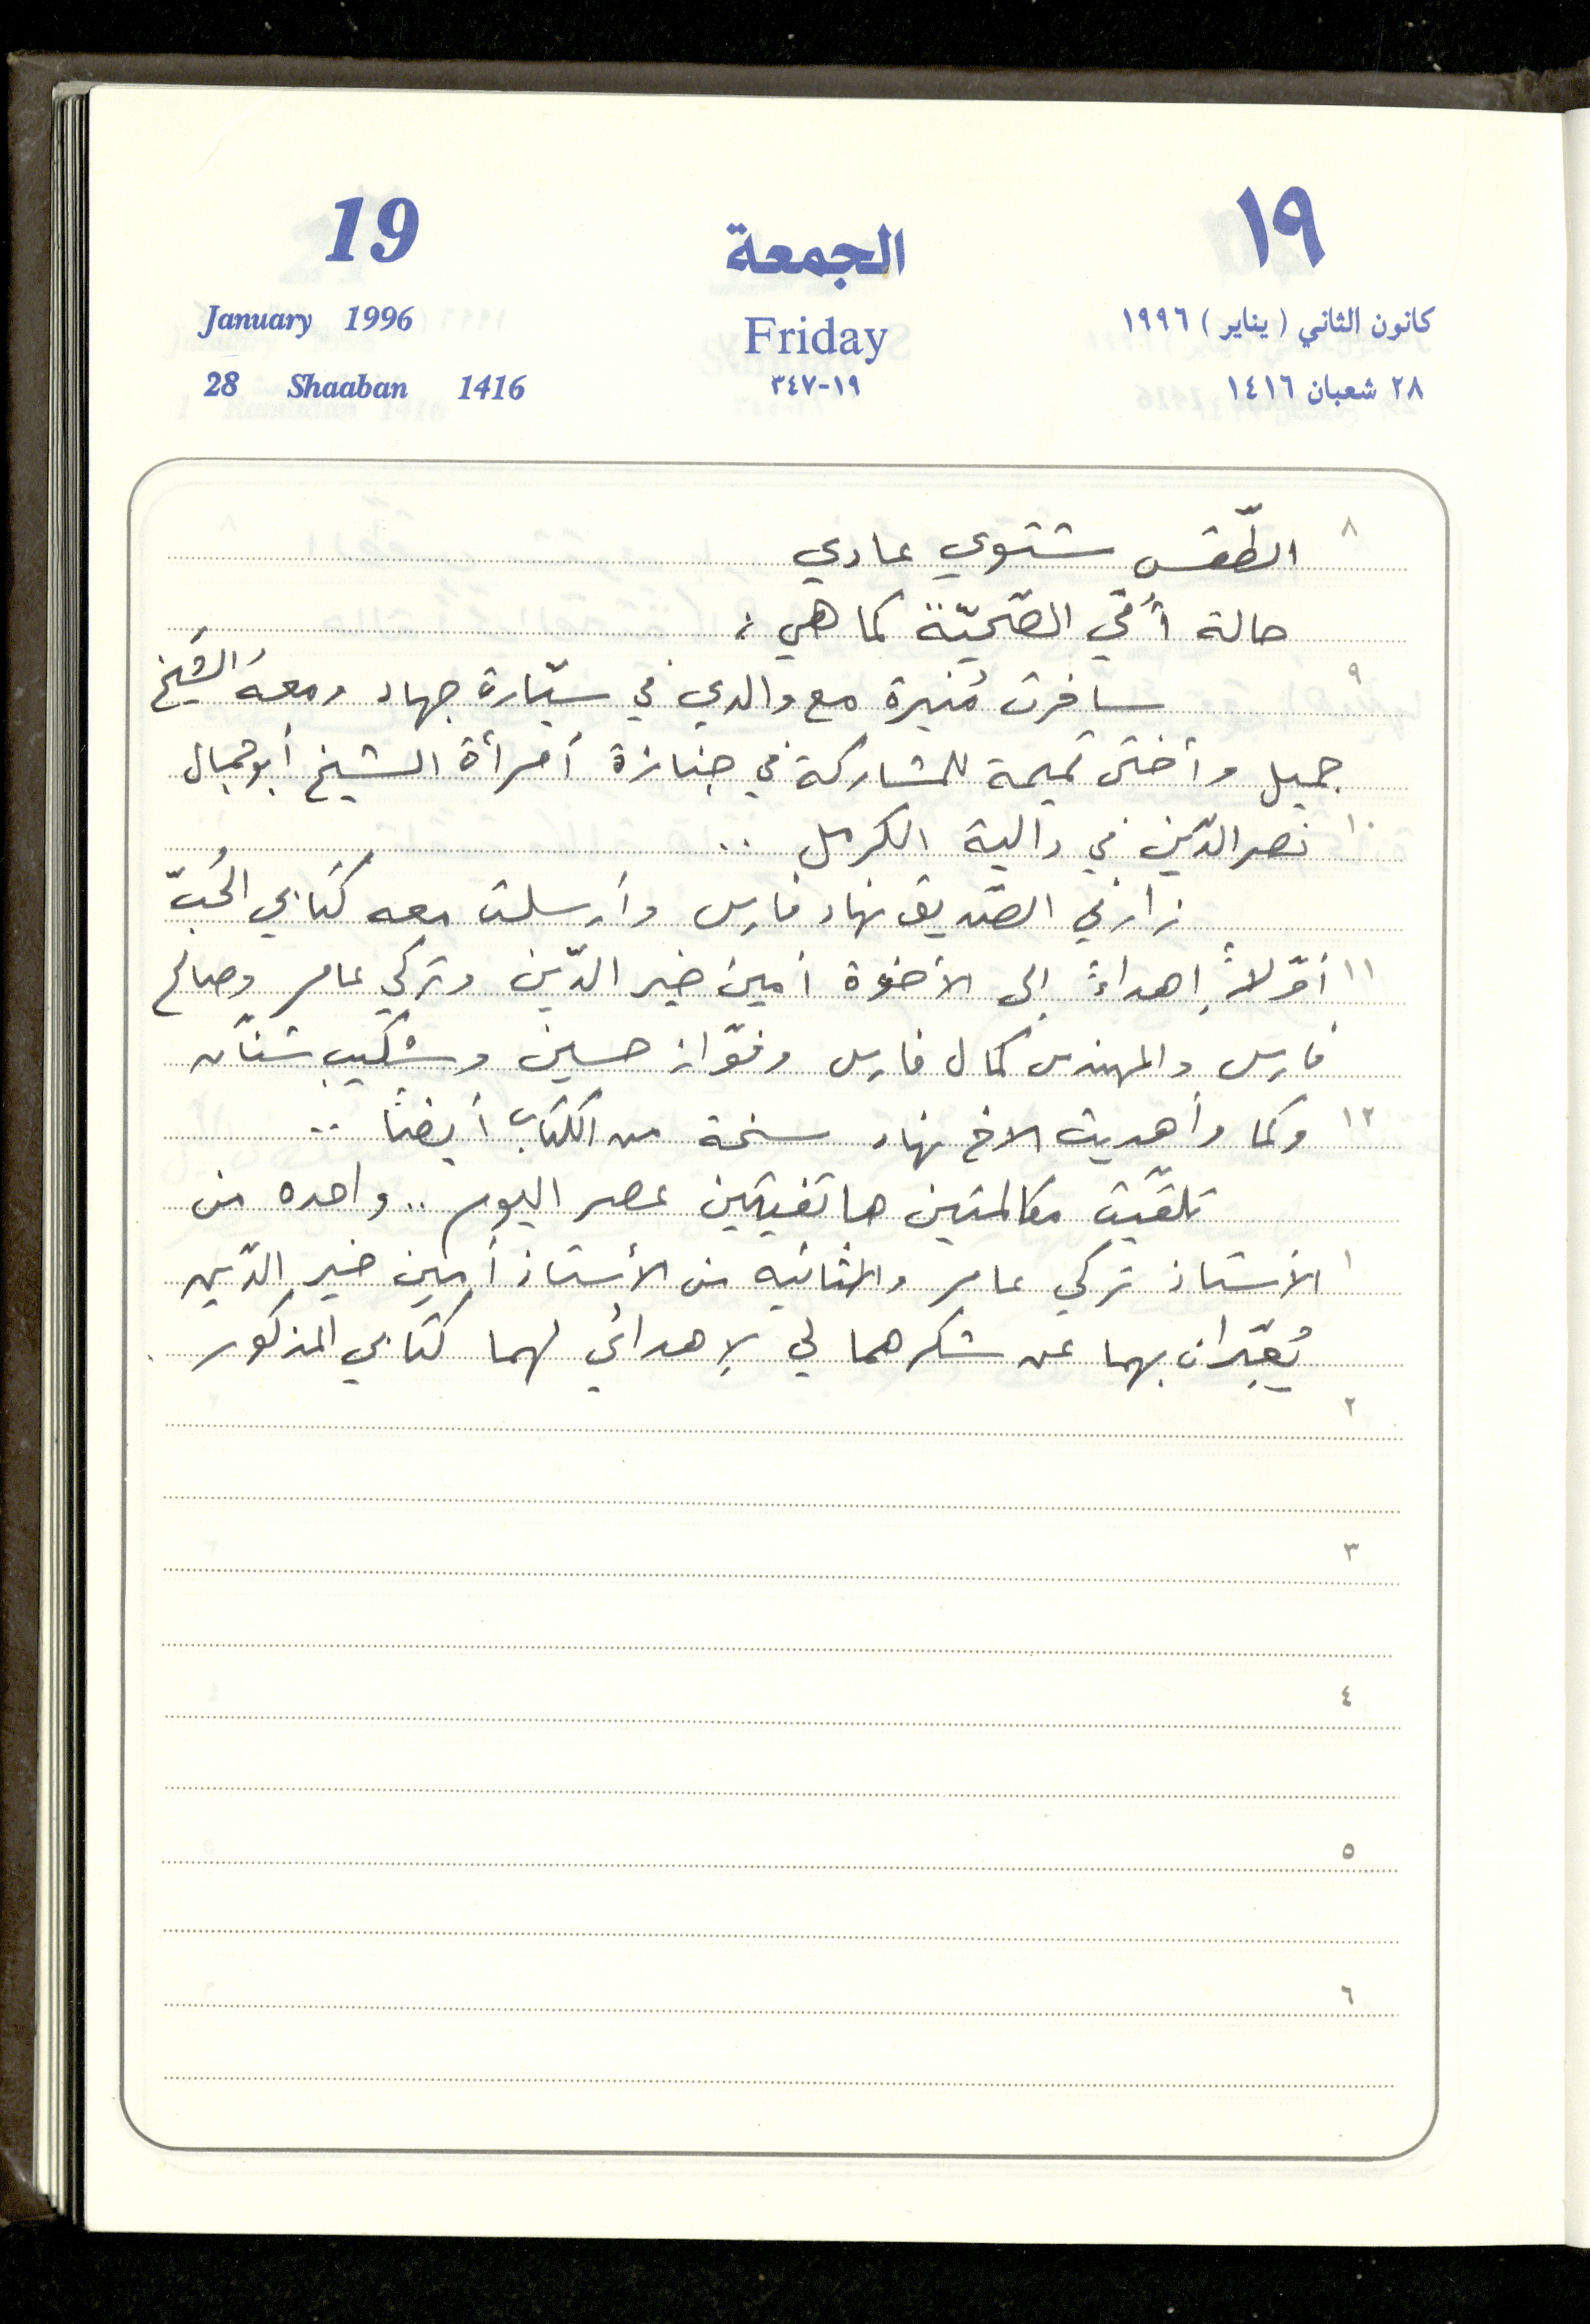 19
الجمعة
١٩
January 1996
Friday
كانون الثاني (يناير) ١٩٩٦
28 Shaaban 1416
١٩-٣٤٧
٢٨ شعبان ١٤١٦
٨
الطّقس شتوي عادي
حالة أمّي الصّحيّة كما هي ؛
٩
سافرت مُنيرة مع والدي في سيّارة جهاد ومعه الشّيخ
جميل وأختي تميمة للمشاركة في جنازة أمرأة الشيخ أبو جمال
١٠
نصر الدّين في دالية الكرمل ..
زارني الصّديق نهاد فارس وأرسلت معه كتابي الحُبّ
١١
أوّلاً إهداءً إلى الأخوة أمين خير الدّين وتركي عامر وصالح
فارس والمهندس كمال فارس وفوّاز حسين وشكيب شنّان
١٢
وكما وأهديت الاخ نهاد نسخة من الكتاب أيضاً ..
تلقّيت مكالمتين هاتفيتين عصر اليوم .. واحده من
١
الأستاذ تركي عامر والثانيه من الأستاذ أمين خير الدّين
يُعبّران بهما عن شكرهما لي لإهدائي لهما كتابي المذكور .
٢
٣
٤
٥
٦